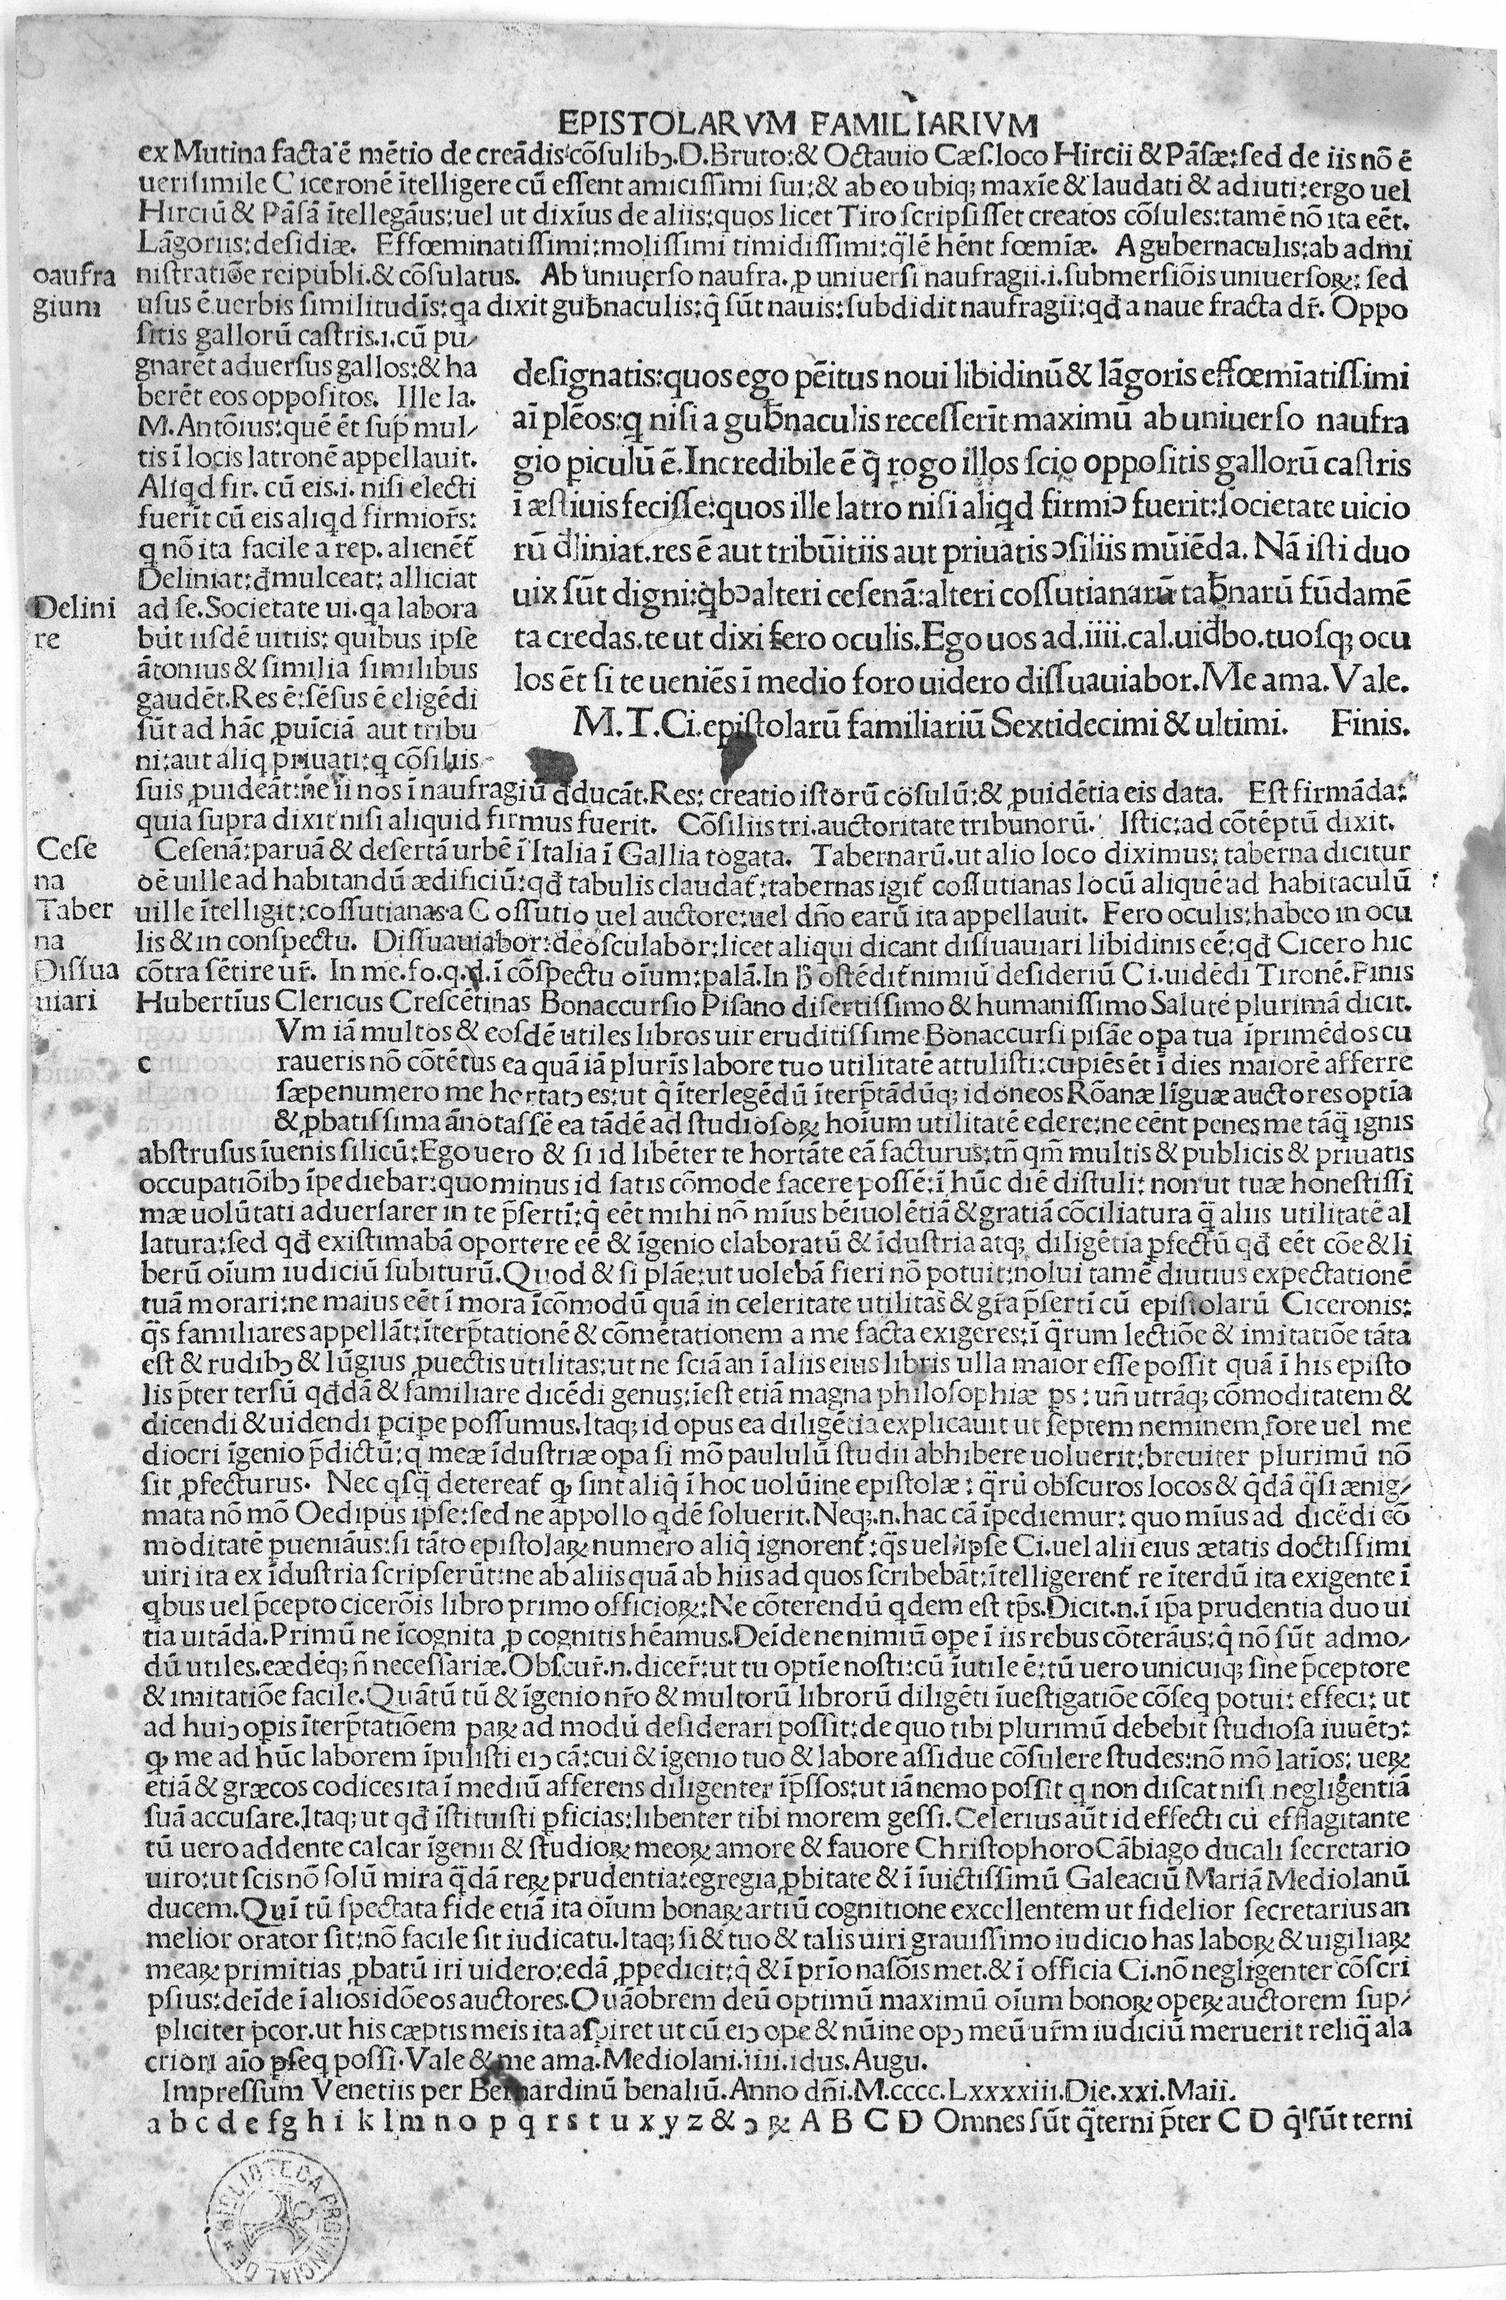 EPISTOLARVM FAMILIARIVM
ex Mutina facta ē mētio de creādis cōsulibꝯ.D.Bruto:& Octauio Cæs.loco Hircii & Pāsæ:sed de iis nō ē
uerisimile Ciceronē ītelligere cū essent amicissimi sui:& ab eo ubiq; maxīe & laudati & adiuti:ergo uel
Hirciū & Pāsā ītellegāus:uel ut dixīus de aliis:quos licet Tiro scripsisset creatos cōsules:tamē nō ita eēt.
Lāgoriis:desidiæ. Effœminatissimi:molissimi timidissimi:q̄lē hēnt fœmīæ. A gubernaculis:ab admi
oaufra
gium
nistratiōe reipubli.& cōsulatus. Ab uniuerso naufra.ꝓ uniuersi naufragii.i.submersiōis uniuersoꝝ: sed
usus ē uerbis similitudīs:qa dixit gubnaculis:q̄ sūt nauis:subdidit naufragii:qđ a naue fracta dr̄. Oppo
sitis gallorū castris.i.cū pu⸗
gnarēt aduersus gallos:& ha
berēt eos oppositos. Ille la.
M.Antōius:quē ēt sup̄ mul⸗
tis ī locis latronē appellauit.
Aliqd fir. cū eis.i. nisi electi
fuerīt cū eis aliqd firmiors̄:
q nō ita facile a rep. alienēt᷑
Deliniat:đmulceat: alliciat
Delini
re
ad se.Societate ui.qa labora
būt iisdē uitiis: quibus ipse
ātonius & similia similibus
gaudēt.Res ē:sēsus ē eligēdi
sūt ad hāc ꝓuīciā aut tribu
ni:aut aliq priuati:q cōsiliis
designatis:quos ego pēitus noui libidinū & lāgoris effœmīatissimi
aī plēos:q nisi a gub̄naculis recesserīt maximū ab uniuerso naufra
gio piculū ē.Incredibile ē q̄ rogo illos scio oppositis gallorū castris
ī æstiuis fecisse:quos ille latro nisi aliqd firmiꝯ fuerit:societate uicio
rū đliniat.res ē aut tribūitiis aut priuatis ꝯsiliis mūiēda. Nā isti duo
uix sūt digni:qbꝯ alteri cesenā:alteri cossutianarū tab̄narū fūdamē
ta credas.te ut dixi fero oculis.Ego uos ad.iiii.cal.uiđbo.tuosq; ocu
los ēt si te ueniēs ī medio foro uidero dissuauiabor.Me ama.Vale.
M.T.Ci.epistolarū familiariū Sextidecimi & ultimi. Finis.
suis ꝓuideāt:ne ii nos ī naufragiū đducāt.Res: creatio istorū cōsulū:& ꝓuidētia eis data. Est firmāda:
quia supra dixit nisi aliquid firmus fuerit. Cōsiliis tri.auctoritate tribunorū. Istic:ad cōtēptū dixit.
Cese
na
Taber
na
Dissua
uiari
Cesenā:paruā & desertā urbē ī Italia ī Gallia togata. Tabernarū.ut alio loco diximus: taberna dicitur
oē uille ad habitandū ædificiū:qđ tabulis claudat᷑:tabernas igit᷑ cossutianas locū aliquē ad habitaculū
uille ītelligit:cossutianas.a Cossutio uel auctore:uel dn̄o earū ita appellauit. Fero oculis:habeo in ocu
lis & in conspectu. Dissuauiabor:deosculabor:licet aliqui dicant dissuauiari libidinis eē:qđ Cicero hic
cōtra sētire ur̄. In me.fo.q.d.ī cōspectu oīum:palā.In h̄ ostēdit᷑ nimiū desideriū Ci.uidēdi Tironē.Finis
Hubertīus Clericus Crescētinas Bonaccursio Pisano disertissimo & humanissimo Salutē plurimā dicit.
c
Vm iā multos & eosdē utiles libros uir eruditissime Bonaccursi pisāe opa tua īprimēdos cu
raueris nō cōtētus ea quā iā pluris̄ labore tuo utilitatē attulisti:cupiēs ēt ī dies maiorē afferre
sæpenumero me hortatꝯ es:ut q̄ īterlegēdū īterp̄tādūq; idoneos Rōanæ līguæ auctores optīa
& ꝓbatissima ānotassē ea tādē ad studiosoꝝ hoīum utilitatē edere:ne eēnt penes me tāq̄ ignis
abstrusus īuenis silicū:Ego uero & si id libēter te hortāte eā facturus:tn̄ qm̄ multis & publicis & priuatis
occupatiōibꝯ īpediebar:quominus id satis cōmode facere possē:ī hūc diē distuli: non ut tuæ honestissi
mæ uolūtati aduersarer in te p̄sertī:q̄ eēt mihi nō mīus bēiuolētiā & gratiā cōciliatura q̄ aliis utilitatē al
latura:sed qđ existimabā oportere eē & īgenio elaboratū & īdustria atq; diligētia pfectū qđ eēt cōe & li
berū oīum iudiciū subiturū.Quod & si plāe:ut uolebā fieri nō potuit:nolui tamē diutius expectationē
tuā morari:ne maius eēt ī mora īcōmodū quā in celeritate utilitas & gr̄a p̄sertī cū epistolarū Ciceronis:
q̄s familiares appellāt:īterp̄tationē & cōmētationem a me facta exigeres:ī q̄rum lectiōe & imitatiōe tāta
est & rudibꝯ & lūgius ꝓuectis utilitas:ut ne sciā an ī aliis eius libris ulla maior esse possit quā ī his episto
lis p̄ter tersū qđdā & familiare dicēdi genus:īest etiā magna philosophiæ ps: un̄ utrāq; cōmoditatem &
dicendi & uidendi pcipe possumus.Itaq; id opus ea diligētia explicauit ut septem neminem fore uel me
diocri īgenio p̄dictū:q meæ īdustriæ opa si mō paululū studii abhibere uoluerit:breuiter plurimū nō
sit ꝓfecturus. Nec qsq̄ detereat᷑ ꝙ sint aliq̄ ī hoc uolūine epistolæ: q̄rū obscuros locos & q̄dā q̄si ænig⸗
mata nō mō Oedipus ipse:sed ne appollo qdē soluerit.Neq;.n.hac cā īpediemur: quo mīus ad dicēdi cō
moditatē pueniāus:si tāto epistolaꝝ numero aliq̄ ignorent᷑:q̄s uel ipse Ci.uel alii eius ætatis doctissimi
uiri ita ex īdustria scripserūt:ne ab aliis quā ab hiis ad quos scribebāt:ītelligerent᷑ re īterdū ita exigente ī
qbus uel p̄cepto cicerōis libro primo officioꝝ:Ne cōterendū qdem est tp̄s.Dicit.n.ī ip̄a prudentia duo ui
tia uitāda.Primū ne īcognita ꝓ cognitis hēamus.Deīde ne nimiū ope ī iis rebus cōterāus:q̄ nō sūt admo⸗
dū utiles.eædēq; n̄ necessariæ.Obscur̄.n.dicer̄:ut tu optīe nosti:cū īutile ē:tū uero unicuiq; sine p̄ceptore
& imitatiōe facile.Quātū tū & īgenio nr̄o & multorū librorū diligēti īuestigatiōe cōseq potui: effeci: ut
ad huiꝯ opis īterp̄tatiōem paꝝ ad modū desiderari possit:de quo tibi plurimū debebit studiosa iuuētꝯ:
ꝙ me ad hūc laborem īpulisti eiꝯ cā:cui & īgenio tuo & labore assidue cōsulere studes:nō mō latīos: ueꝝ
etiā & græcos codices ita ī mediū afferens diligenter īp̄ssos:ut iā nemo possit q non discat nisi negligentiā
suā accusare.Itaq; ut qđ īstituisti pficias:libenter tibi morem gessi.Celerius aūt id effecti cū efflagitante
tū uero addente calcar īgenii & studioꝝ meoꝝ amore & fauore Christophoro Cābiago ducali secretario
uiro:ut scis nō solū mira q̄dā reꝝ prudentia:egregia ꝓbitate & ī īuictissimū Galeaciū Mariā Mediolanū
ducem.Quī tū spectata fide etiā ita oīum bonaꝝ artiū cognitione excellentem ut fidelior secretarius an
melior orator sit:nō facile sit iudicatu.Itaq; si & tuo & talis uiri grauissimo iudicio has laboꝝ & uigiliaꝝ
meaꝝ primitias ꝓbatū iri uidero:edā ꝓpedicit:q̄ & ī prīo nasōis met.& ī officia Ci.nō negligenter cōscri
psius:deīde ī alios idōeos auctores.Quāobrem deū optimū maximū oīum bonoꝝ opeꝝ auctorem sup⸗
pliciter p̄cor.ut his cæptis meis ita aspiret ut cū eiꝯ ope & nūine opꝯ meū ur̄m iudiciū meruerit reliq̄ ala
criori aīo pseq possī.Vale & me ama.Mediolani.iiii.idus.Augu.
Impressum Venetiis per Bernardinū benaliū.Anno dn̄i.M.cccc.Lxxxxiii.Die.xxi.Maii.
a b c d e f g h i k l m n o p q r s t u x y z & ꝯ ꝝ A B C D Omnes sūt q̄terni p̄ter C D q̄ sūt terni
BIBLIOTECA PROVINCIAL DE